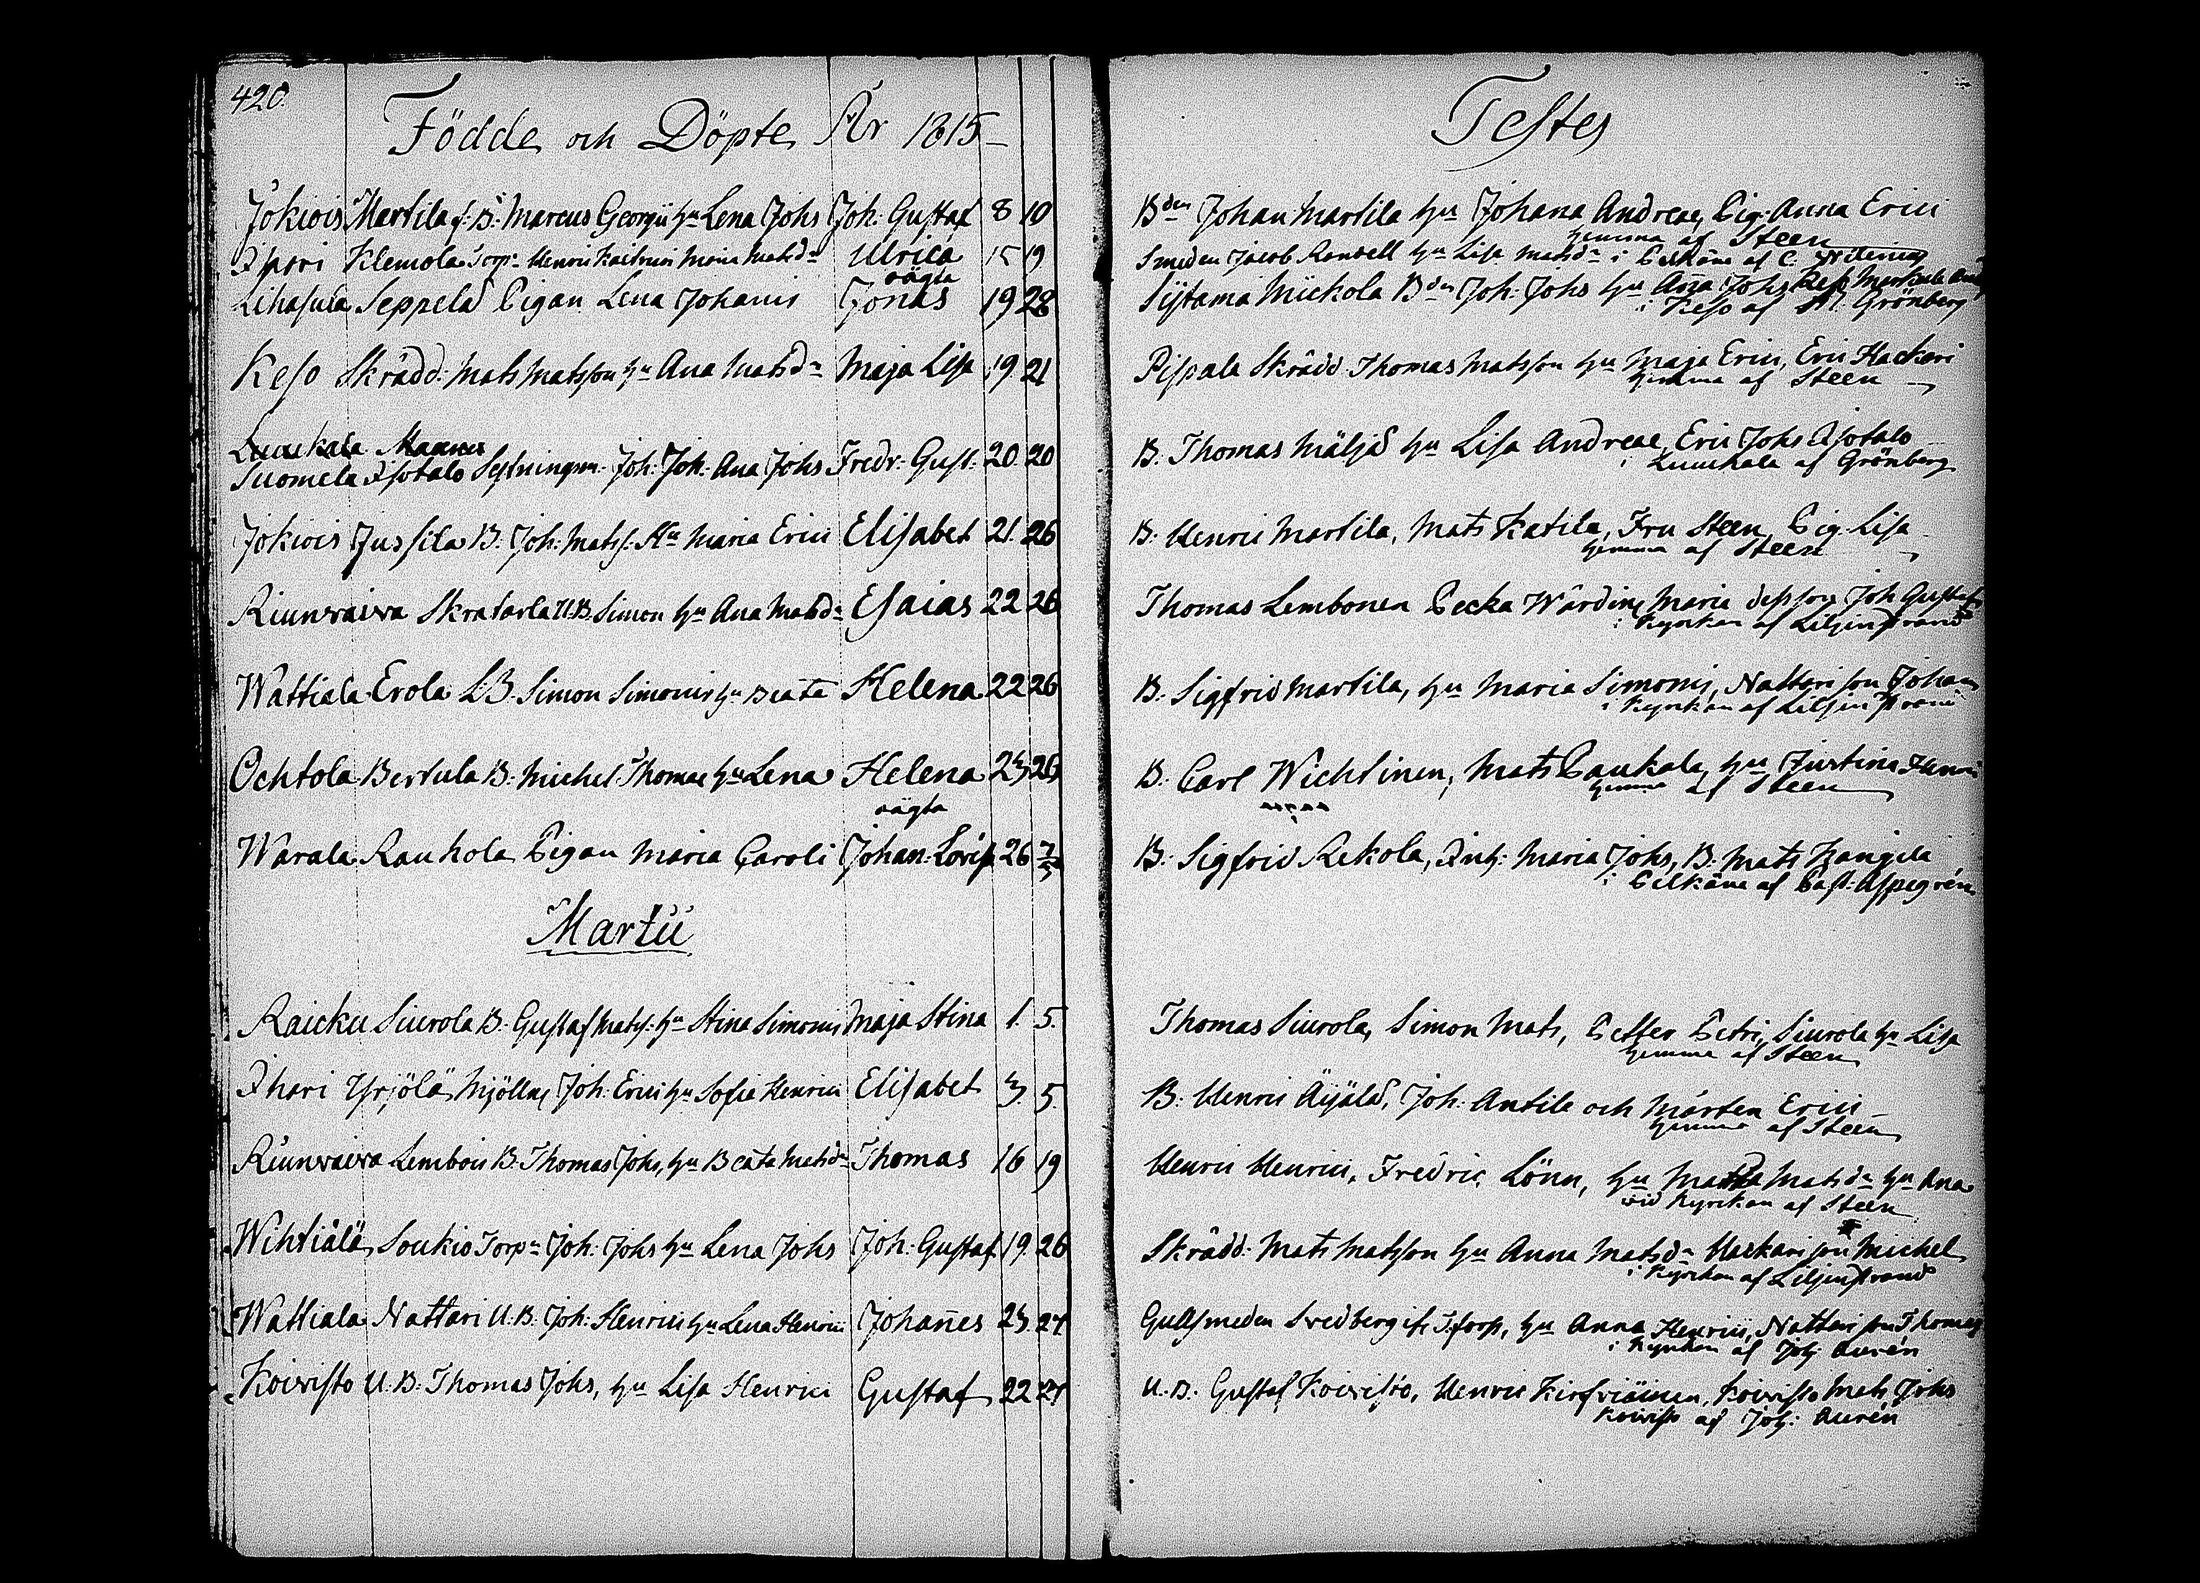 420.
Födde och Döpte År 1815
Jokiois Martila f. B: Marcus Georgii hu Lena Johs Joh: Gustaf 8 19
Ihari Klemola Torp: Henric Maria Matsdr Ulrica 15 19
oägta
Lihasula Seppelä Pigan Lena Johanis Jonas 19 28
Keso Skrädd: Mats Matsson hu Ana Matsdr Maja Lisa 19 21
Luukala
Suomela Isotalo Joh: Joh: Ana Johs Fredr: Gust: 20 20
Jokiois Jussila B: Joh: Mats: Hu Maria Erici Elisabet 21 26
Riunvaiva U.B: Simon hu Ana Matsdr Esaias 22 26
Wattiala Erola L.B. Simon Simonis hu Beata Helena 22 26
Ochtola Bertula B: Michel Thomae hu Lena Helena 23 26
oägta
Warala Rauhola Pigan Maria Caroli Johan: Lovisa 26 7/3
Martii
Raicku Siurola B: Gustaf Mats: hu Stina Simonis Maja Stina 1. 5.
Ihari Yrjölä Mjölln: Joh: Erici hu Sofia Henrici Elisabet 3. 5.
Riunvaiva Lembois B: Thomas Johs, hu Beata Matsdr Thomas 16 19
Wihtiälä Soukio Torp: Joh: Johs hu Lena Johs Joh: Gustaf 19. 26
Wattiala Nattari U.B. Joh: Henrici hu Lena Henrici Johañes 23. 27
Koivisto U.B: Thomas Johs, hu Lisa Henrici Gustaf 22 27
Testes
Bden Johan Martila hu Johana Andreae, Pig: Anna Erici
hemma af Steen
Smeden Jacob hu Lisa Matsdr i Pelkäne af C.
Mickola Bden Joh: Johs hu Johs
i Keso af Grönberg
Pispala Skrädd Thomas Matsson hu Maja Erici, Eric Hackari
hemma af Steen
B. Thomas Mäljä hu Lisa Andreae, Eric Johs Isotalo
i Luuckala af Grönberg
B: Henric Martila, Mats Katila, Fru Steen, Pig: Lisa
hemma af Steen
Thomas Lembonen Pecka Maria Joh: Gustaf
i Kyrckan af Liljenstrand
B: Sigfrid Martila, hu Maria Simonis, Nattari son Johan
i Kyrckan af Liljenstrand
B: Carl Wichtinen, Mats Paukala, hu Justina
hemma af Steen
B: Sigfrid Rekola, Inh: Maria Johs, B: Mats Kangila
i Pelkäne af Past: Aspegrén
Thomas Siurola, Simon Mats, Petter Petri, Siurola hu Lisa
hemma af Steen
B: Henric Äijälä, Joh: Antila och Mårten Erici
hemma af Steen
Henric Henrici, Fredric Lönn, hu Matsdr hu Ana
vid Kyrckan af Steen
Skrädd: Mats Matsson hu Anna Matsdr Hackari son Michel
i Kyrckan af Liljenstrand
Gullsmeden Svedberg hu Anna Henrici, Nattari son Thomas
i Kyrckan af Joh: Aurén
U.B. Gustaf Koivisto, Henric Koivisto Mats Johs
Koivisto af Joh: Aurén